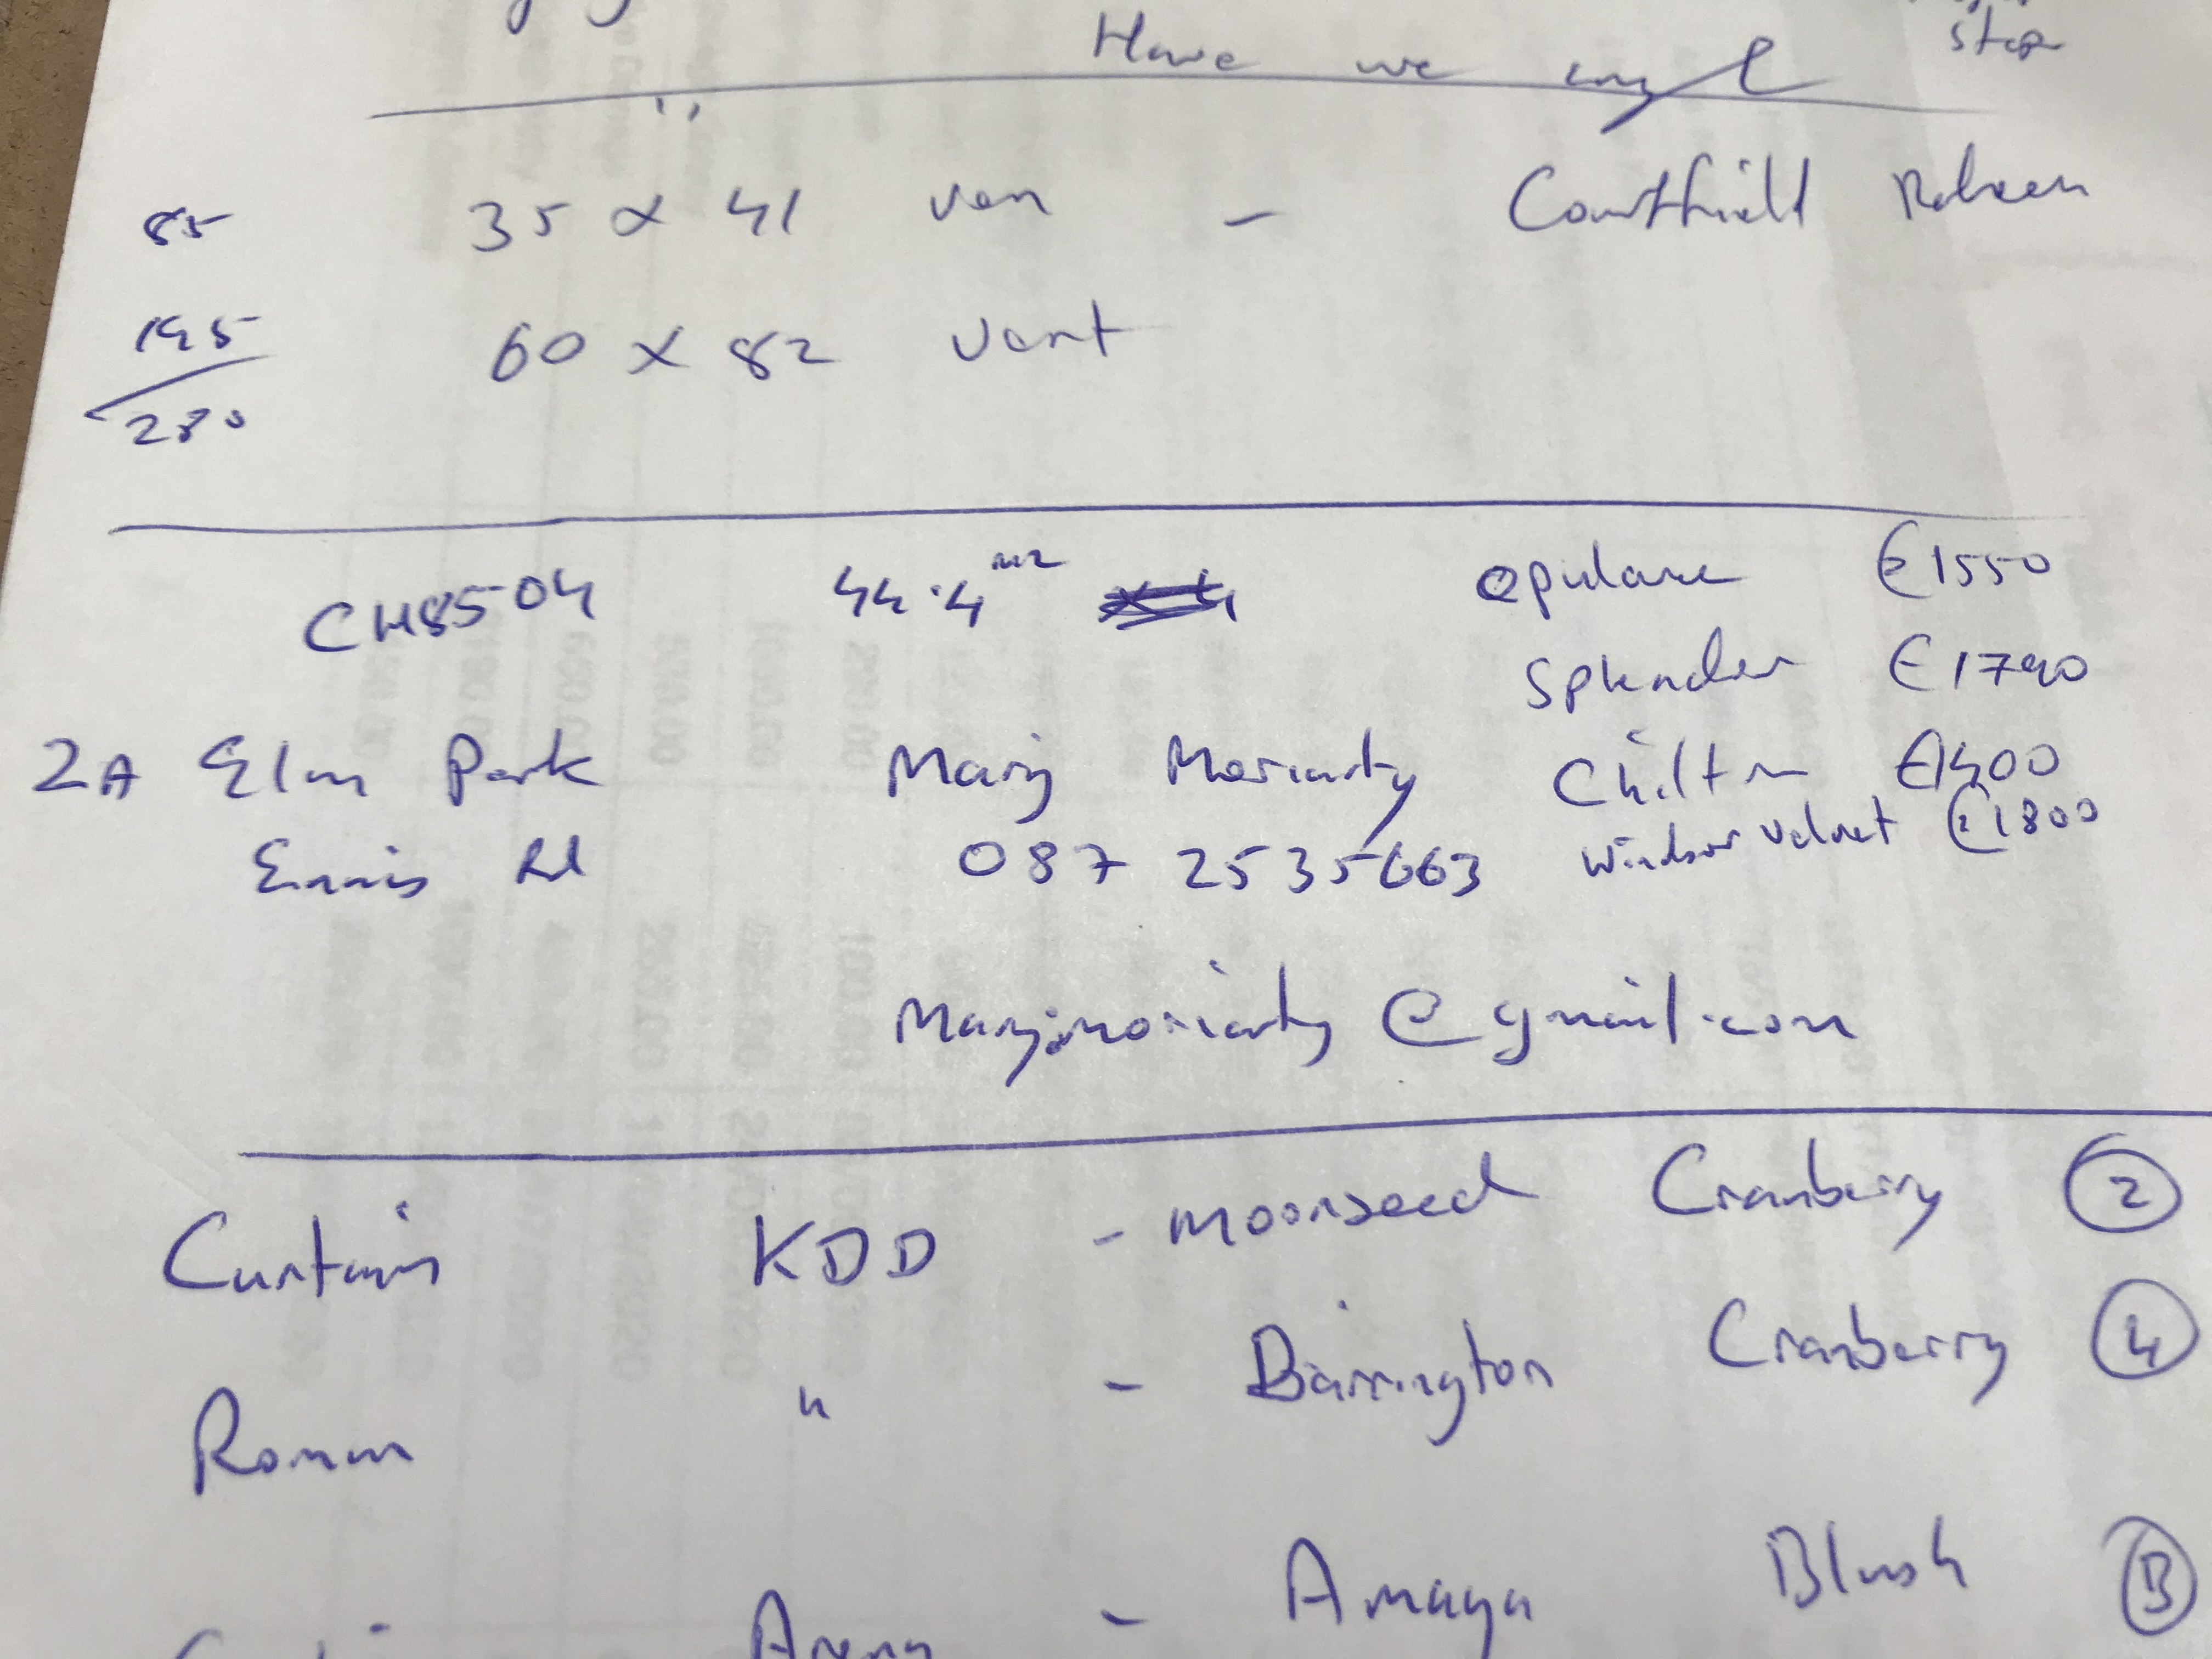 Have we any stop
85 35 x 41 ven -
195 60 x 82 vert
280
CH8504 44.4 m2 opulance €1550
Splender €1790
2A Elm Park Mary Moriarty Chiltn €1400
Ennis Rd 087 2535663 windsor velvet €1800
Maryjmoriarty@gmail.com
Curtains KDD - moonseed Cranberry 2
Roman " - Barrington Cranberry 4
Amaya Blush 3